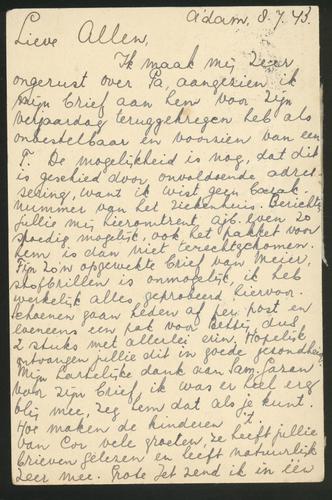 A'dam, 8.7.'43.
Lieve Allen,
Ik maak mij zeer
ongerust over Pa, aangezien ik
mijn brief aan hem voor zijn
verjaardag teruggekregen heb als
onbestelbaar en voorzien van een
T. De mogelijkheid is nog, dat dit
is geschied door onvoldoende adres-
seering, want ik wist geen barak-
nummer van het ziekenhuis. Bericht
jullie mij hieromtrent, a.j.b. even zo
spoedig mogelijk, ook het pakket voor
hem is dan niet terechtgekomen.
Fijn zo'n opgewekte brief van Meier,
stofbrillen is onmogelijk, ik heb
werkelijk alles geprobeerd hiervoor.
Schoenen gaan heden af per post en
tevens een pak voor Betsij, dus
2 stuks met allerlei erin. Hopelijk
ontvangen jullie dit in goede gezondheid.
Mijn hartelijke dank aan Sam
voor zijn brief, ik was er heel erg
blij mee, zeg hem dat als je kunt.
Hoe maken de kinderen 't
van Cor vele groeten, ze heeft jullie
brieven gelezen en leeft natuurlijk
zeer mee. Grote Jet zend ik in één